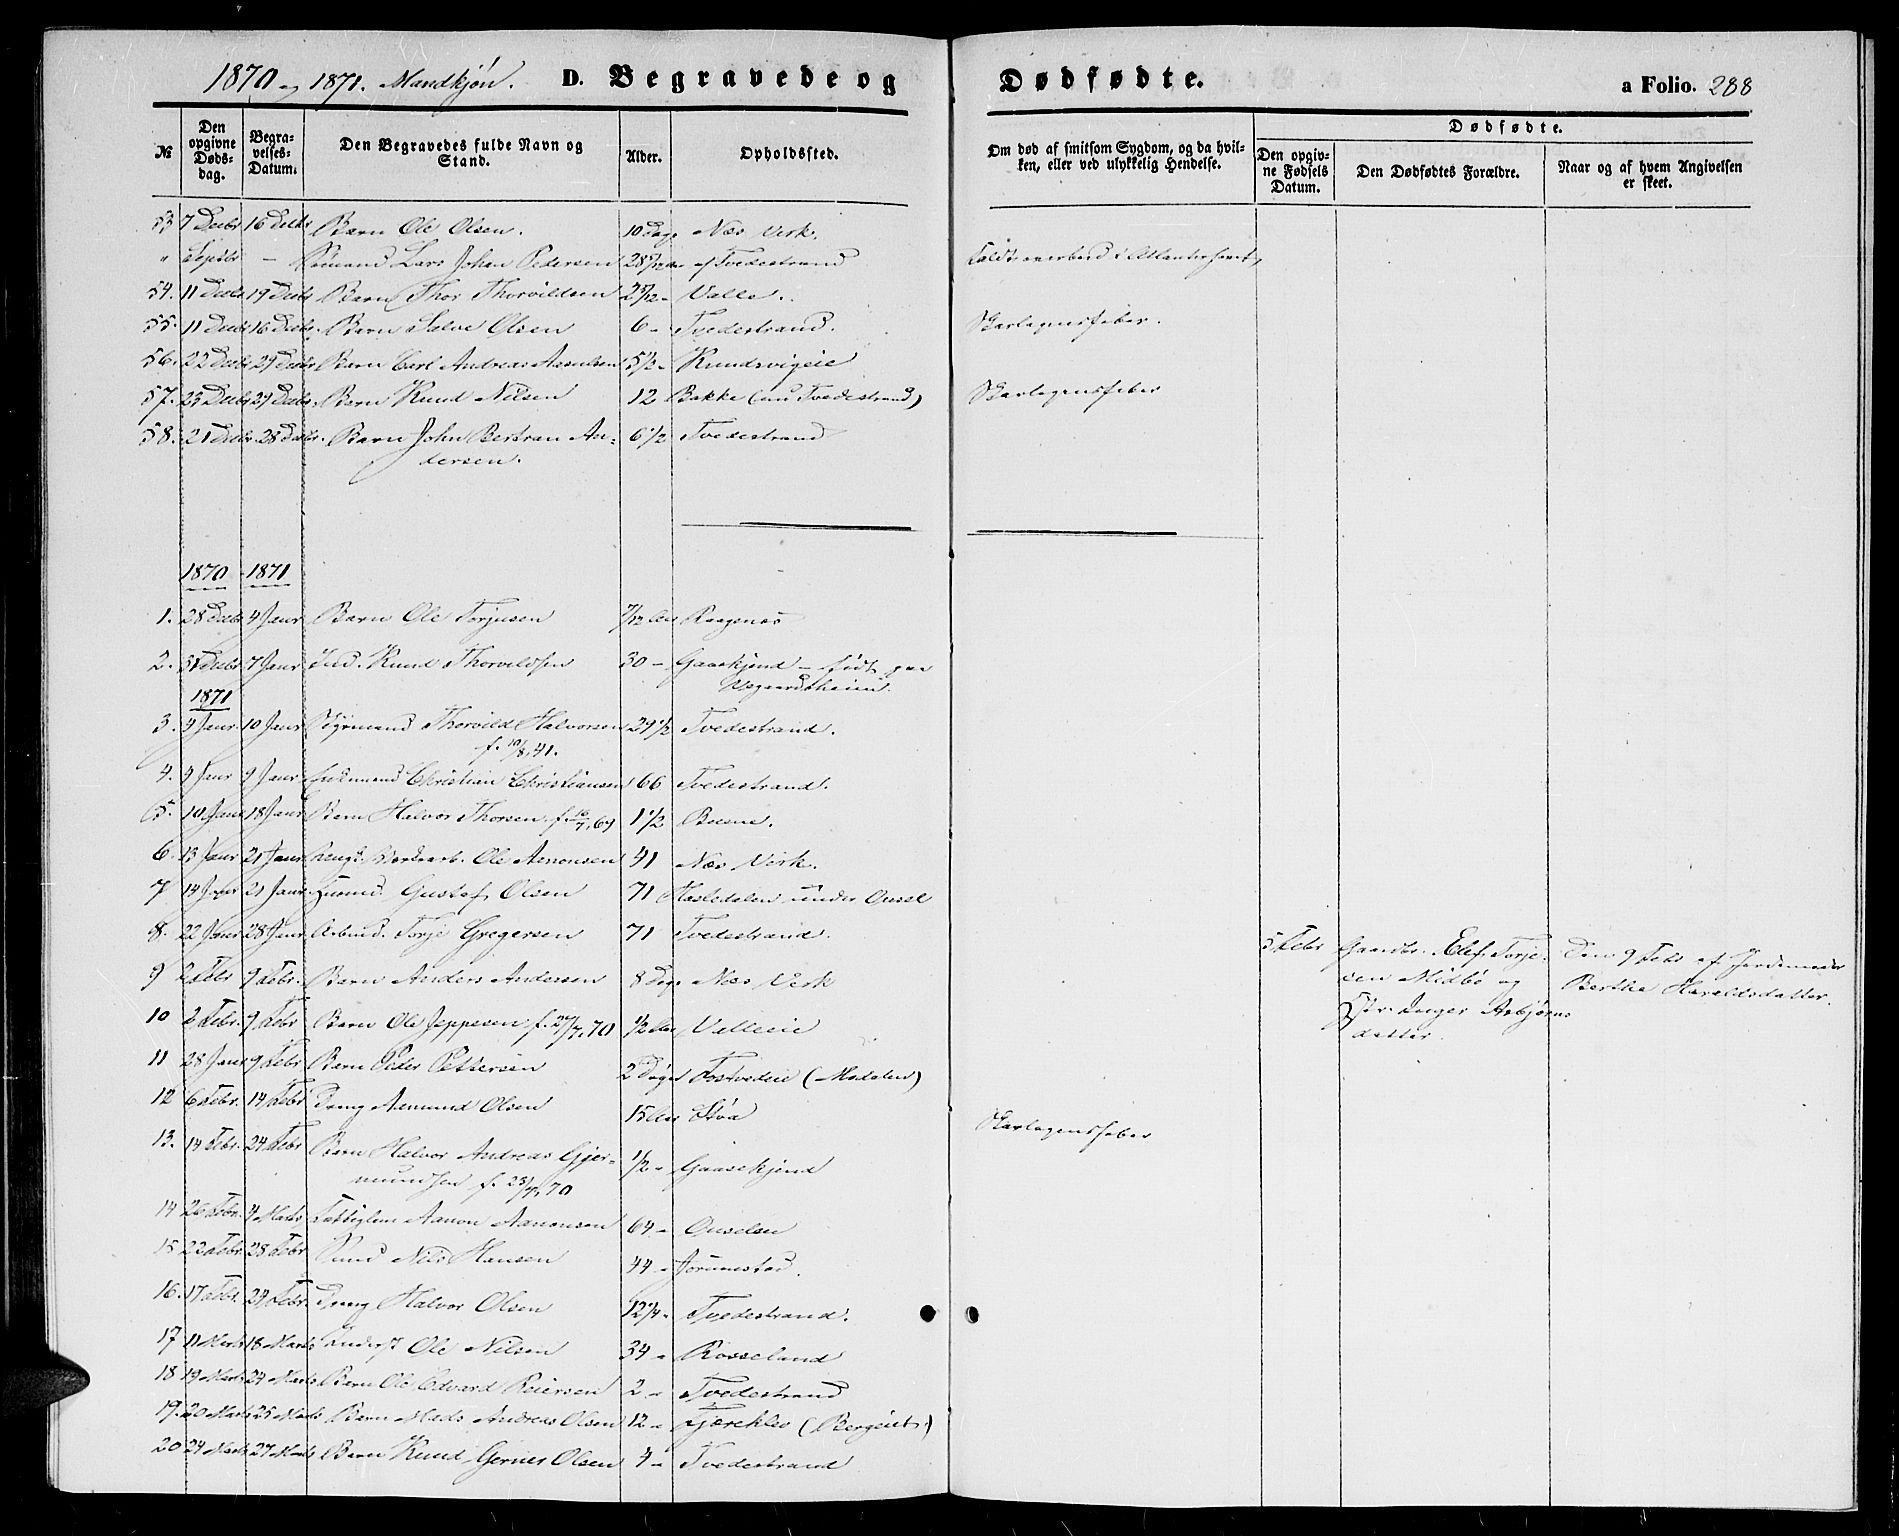 1870 og 1871. Mandkjøn. D. Begravede og Dødfødte. a Folio. 288
№ Den opgivne Døds-dag. Begra-velses-Datum. Den Begravedes fulde Navn og Stand. Alder. Opholdssted. Om død af smitsom Sygdom, og da hvil-ken, eller ved ulykkelig Hendelse. Dødfødte. Den opgiv-ne Fødsels Datum. Den Dødfødtes Forældre. Naar og af hvem Angivelsen er skeet.
53 7 Decbr 16 Decbr Barn Ole Olsen. 10 Dage Næs Verk.
" Septbr — Sømand Lars Johan Pedersen 28 5/12 Aar af Tvedestrand Faldt overbord i Atlanterhavet,
54. 11 Decbr 19 Decbr Barn Thor Thorvildsen Valle.
55. 11 Decbr 16 Decbr. Barn Salve Olsen 6 " Tvedestrand. Skarlagensfeber.
56. 22 Decbr 29 Decbr Barn Carl Andreas 5 1/2 " Knudsvigeie
57. 23 Decbr 29 Decbr. Barn Knud Nilsen 12 Bakke (nu Tvedestrand) Skarlagensfeber
58. 21 Decbr. 28 Decbr. Barn John Bertran An-
dersen. 6 1/2 Tvedestrand
1870 1871
1. 28 Decbr 4 Janr Barn Ole Torjusen 7/12 Aar Raagenæs
2. 31 Decbr 7 Janr Ind. Knud Thorvildsen 30 — Gaaskjend — født paa
Vegaardsheien.
1871
3. 4 Janr. 10 Janr Styrmand Thorvild Halvorsen 29 1/2 Tvedestrand.
f. 10/8, 41.
4. 4 Janr 9 Janr Christian Christiansen 66 Tvedestrand.
5. 10 Janr 18 Janr Barn Halvor Thorsen f. 16/7, 69 1 1/2 Buene.
6. 13 Janr 21 Janr Ole Aanonsen 41 Næs Verk.
7 14 Janr 21 Janr. Husmd. Gustaf Olsen 71 Hasledalen under Ousel
8. 22 Janr 28 Janr Arbmd. Torje Gregersen 71 Tvedestrand.
5 Febr Gaardbr. Elef Torje- Den 9 Febr af Jordemoder
sen Midbø og Berthe Haraldsdatter.
Hstr. Inger Asbjørns
datter.
9 2 Febr 9 Febr. Barn Anders Andersen 8 Dage Næs Verk
10 2 Febr. 9 Febr Barn Ole Jeppesen f. 24/7, 70 1/2 Aar Valleeie
11 28 Janr 9 Febr Barn Peder Pettersen 2 Dage Fostvedeie (Modalen)
12 6 Febr. 14 Febr Dreng Asmund Olsen 15 Aar Støa
13. 14 Febr. 24 Febr Barn Halvor Andreas Gjer-
mundsen 1/2 " Gaasekjend Skarlagensfeber
14 26 Febr. 4 Marts Fattiglem Aanon Aanonsen 64 " Ouselen
15 22 Febr. 28 Febr Nils Hansen 44 " Jorunstad.
16. 17 Febr. 24 Febr. Dreng Halvor Olsen 12 1/4 " Tvedestrand.
17 11 Marts 18 Marts Inderst Ole Nilsen 34 " Rosseland
18 19 Marts 24 Marts Barn Ole Edvard Reiersen 2 " Tvedestrand
19. 20 Marts 25 Marts Barn Mads Andreas Olsen 12 " Fjæreklev
20 24 Marts 27 Marts Barn Knud Gerner Olsen 4 " Tvedestrand